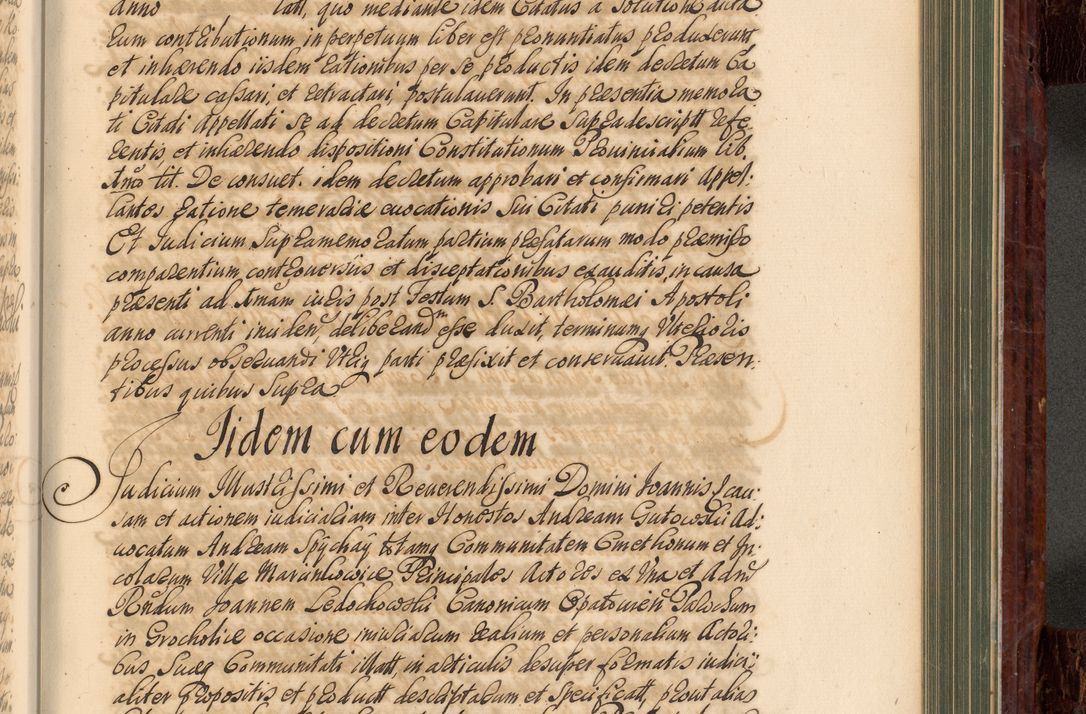 anno latt, quo mediante idem Citatus a solutione dicta
rum contributionum in perpetuum liber est pronuntiatus produxerunt
et inhærendo iisdem rationibus per se productis idem decretum Ca
pitulare cassari, et retractari postulaverunt. In præsentia memora
ti Citati Appellati se ad decretum Capitulare supradescriptt refe
rentis, et inhærendo dispositioni Constitutionum Provincialium lib
tit. De consuet. idem decretum approbari et confirmari Appel:
lantes ratione temerariæ evocationis sui Citati puniri petentis
Et Judicium supramemoratum partium præfatarum modo præmisso
comparentium controversiis et disceptationibus exauditis, in causa
præsenti ad iuris post Festum S. Bartholomæi Apostoli
anno currenti inciden, deliberand esse duxit, terminumq Ulterioris
processus observandi Utriq parti præfixit et conservavit. Præsen:
tibus quibus supra
Iidem cum eodem
Judicium Illustrissimi et Reverendissimi Domini Joannis s cau
sam et actionem iudiciariam inter Honestos Andream Gutowski Ad:
vocatum Andream Spÿchaÿ totamq Communitatem Cmethonum et In:
colarum Villæ Marcinkowice Principales Actores ex Una et Adm
Rndum Joannem Ledochowski Canonicum Opatovien Parochum
in Grocholice occasione iniuriarum realium et personalium Actori:
bus suæq Communitati illatt, in articulis desuper formatis iudici:
aliter propositis et productt descriptarum et specificatt, prout alias